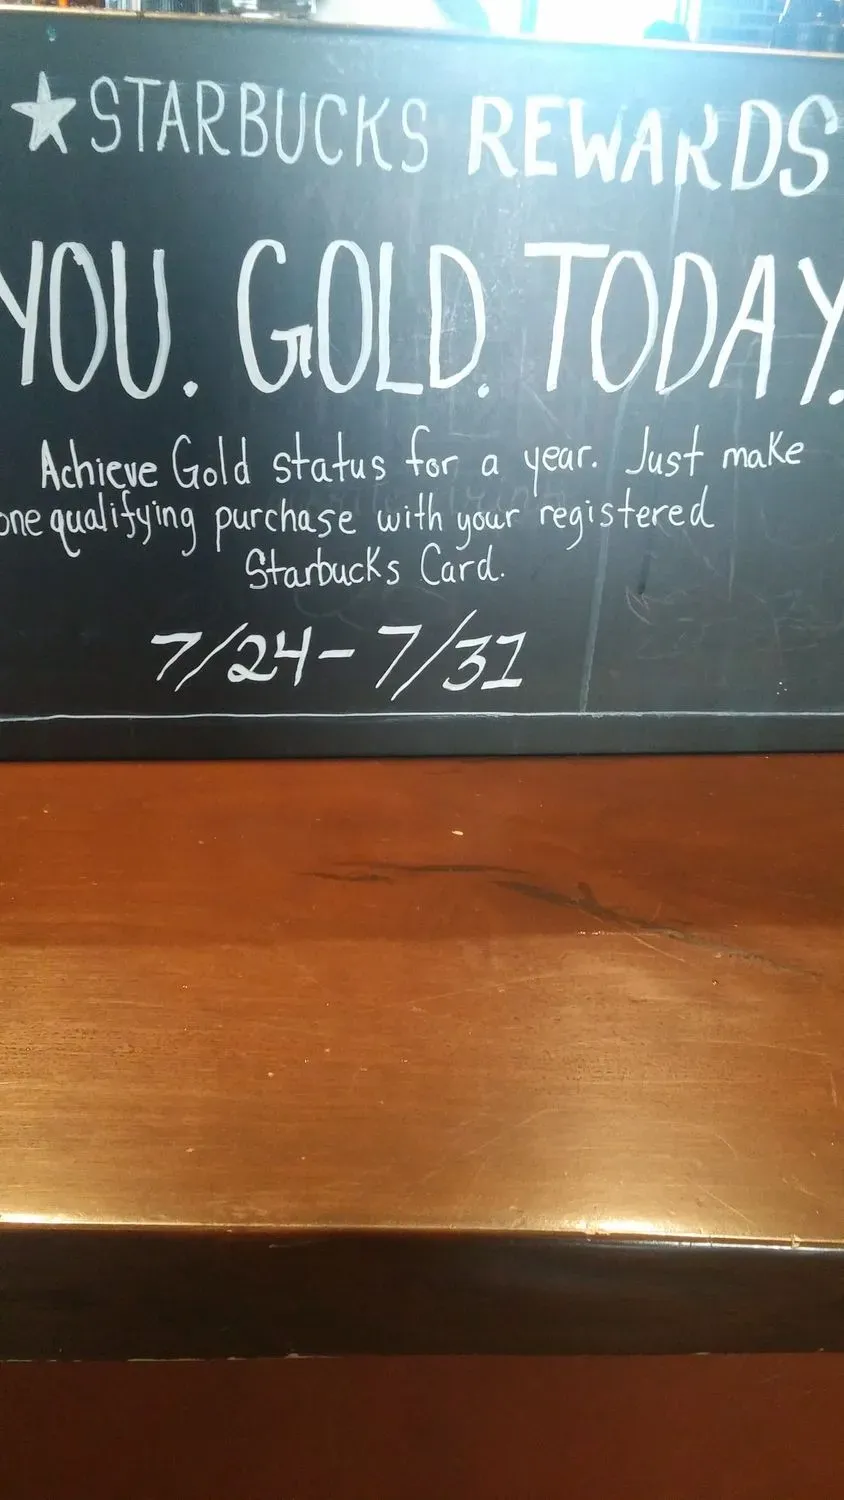 ★ STARBUCKS REWARDS
YOU. GOLD. TODAY.
Achieve Gold status for a year. Just make
one qualifying purchase with your registered
Starbucks Card.
7/24 - 7/31